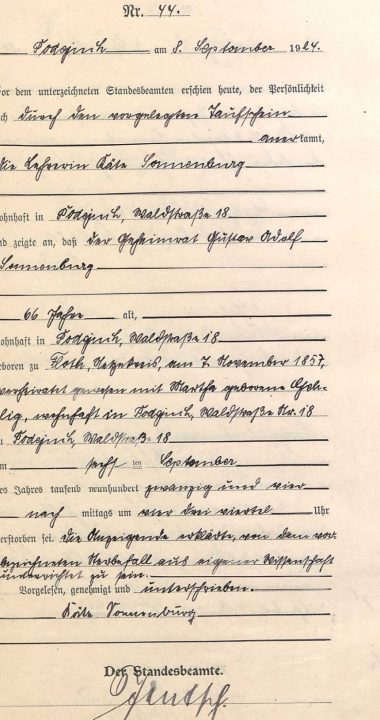 Nr. 44.
Podejuch am 8. September 1924.
or dem unterzeichneten Standesbeamten erschien heute, der Persönlichkeit
ch durch den vorgelegten Taufschein
anerkannt,
die Lehrerin Käte Sonnenburg
ohnhaft in Podejuch, Waldstraße 18
nd zeigte an, daß der Geheimrat Gustav Adolf
Sonnenburg
66 Jahre alt,
ohnhaft in Podejuch, Waldstraße 18
eboren zu am 7. November 1857,
verheiratet gewesen mit Martha geborene
lig, wohnhaft in Podejuch, Waldstraße Nr. 18
Podejuch, Waldstraße 18
m sechsten September
es Jahres tausend neunhundert zwanzig und vier
nach mittags um vier drei viertel Uhr
erstorben sei. Die Anzeigende erklärte, von dem vor-
bezeichneten Sterbefall aus eigener Wissenschaft
unterrichtet zu sein.
Vorgelesen, genehmigt und unterschrieben.
Käte Sonnenburg
Der Standesbeamte.
Jentsch.